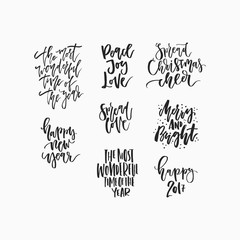 The most
wonderful
time of
the year
Peace
Joy
Love
Spread
Christmas
cheer
happy
new
year
Spread
love
Merry
AND
Bright
THE MOST
WONDERFUL
TIME OF THE
YEAR
happy
2017